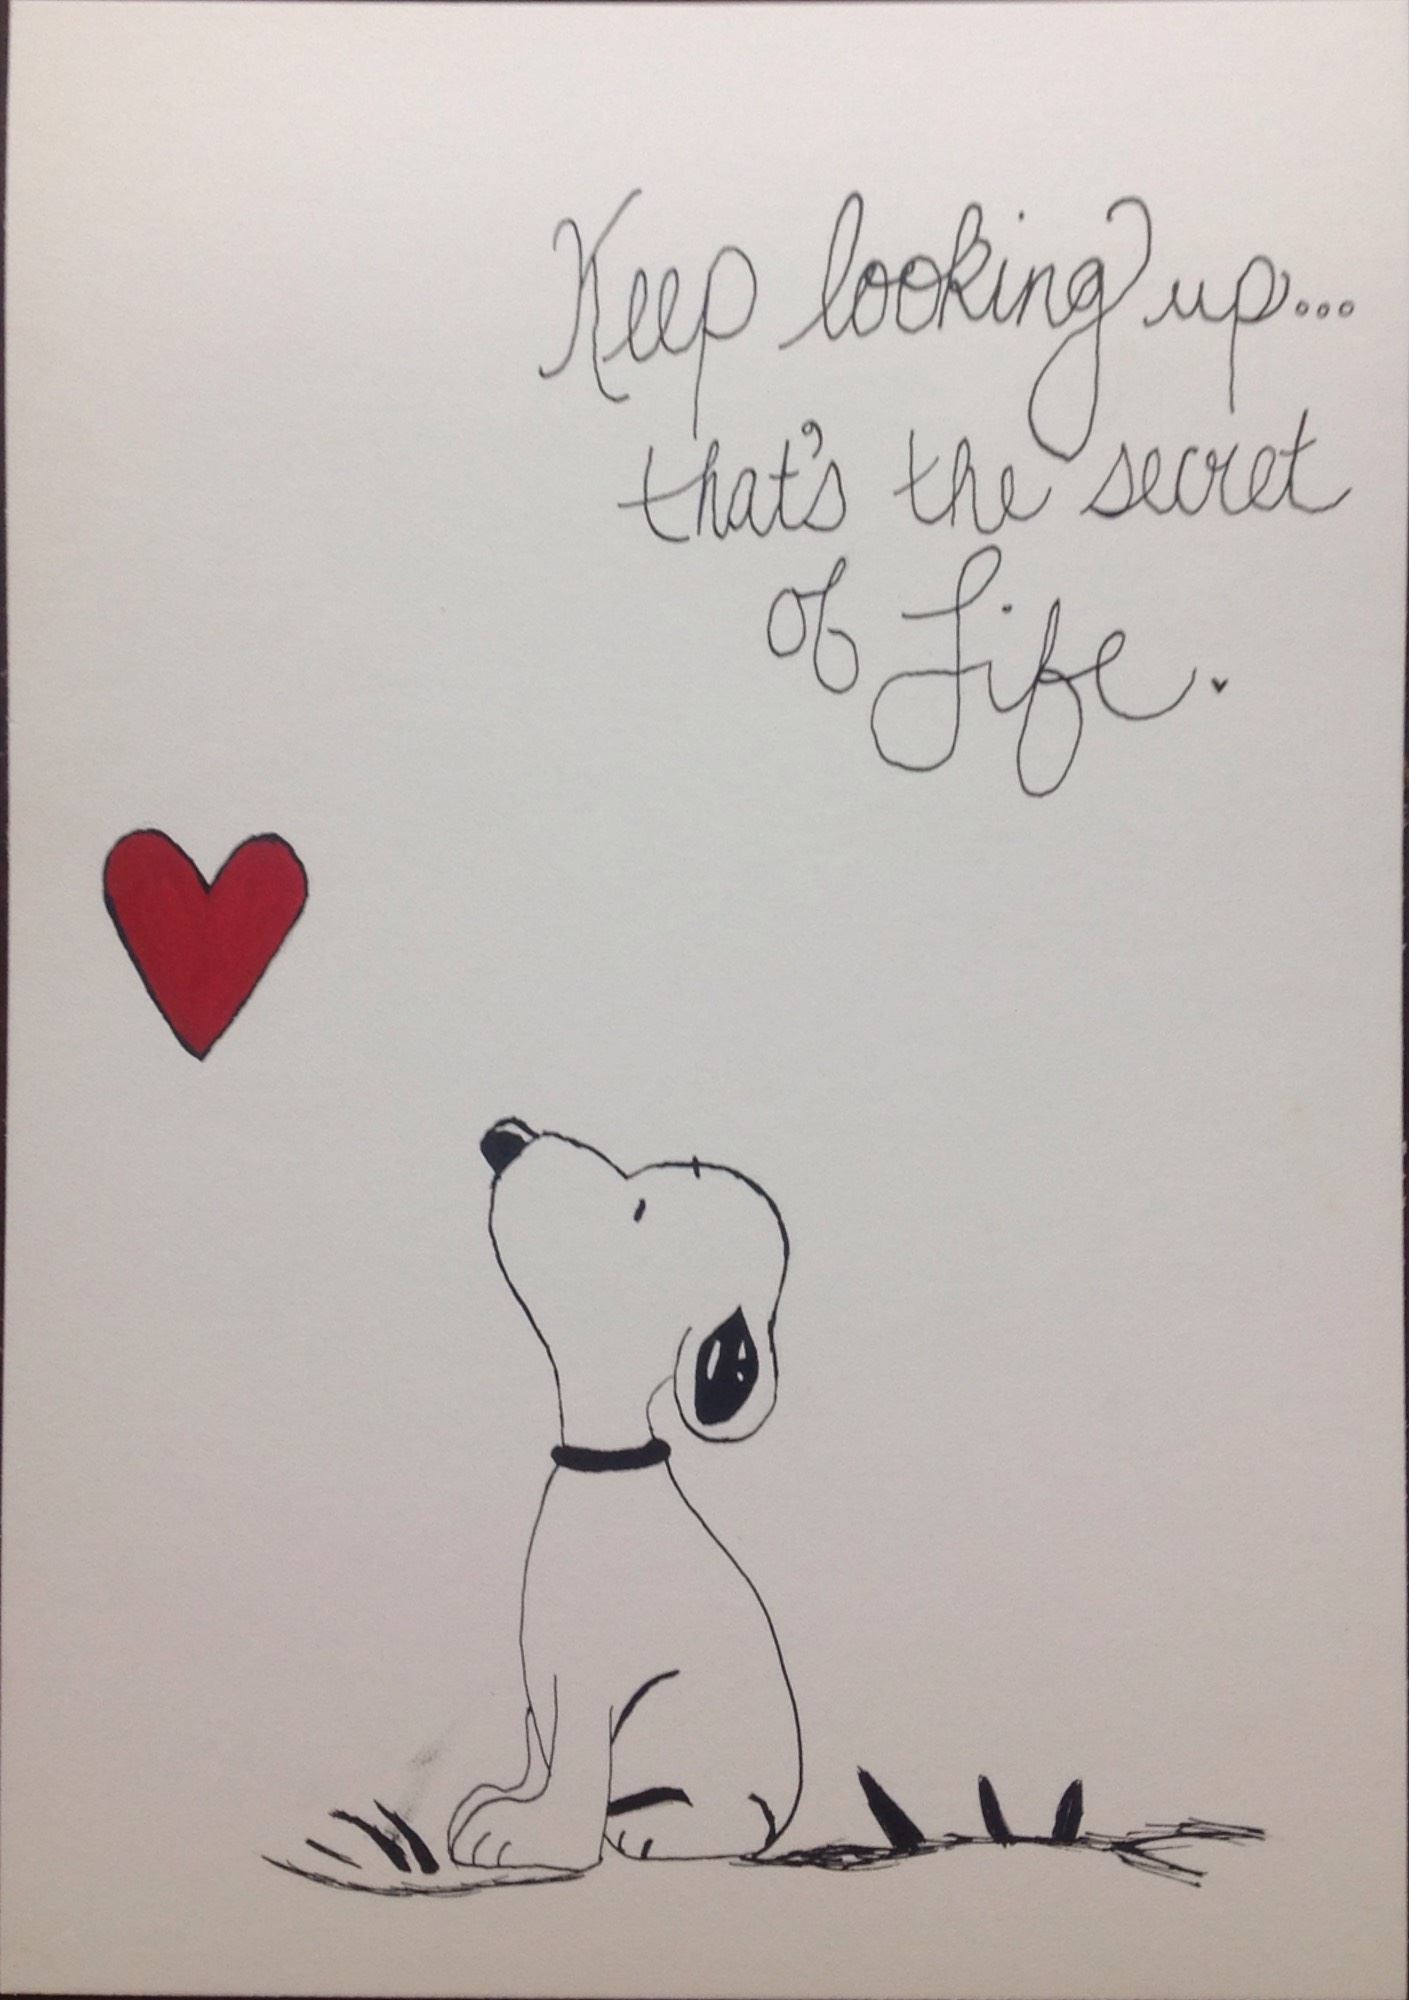 Keep looking up...
that's the secret
of Life.